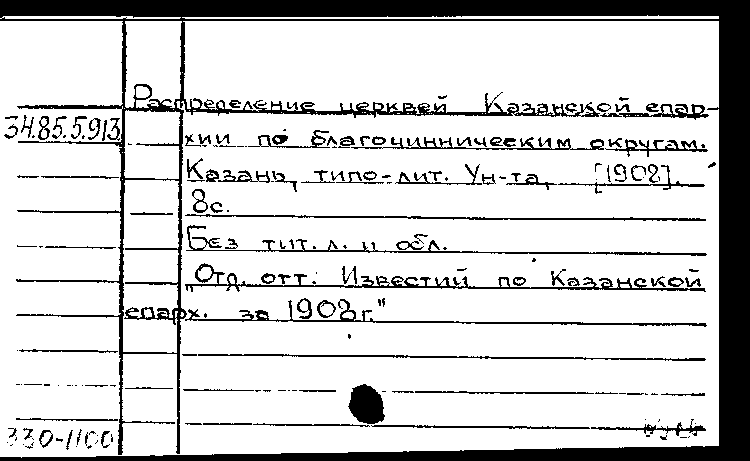 Распределение церквей Казанской епар-
34.85.5.913
хии по благочинническим округам.
Казань, типо-лит. Ун-та, [1908].
8с.
Без тит. л. и обл.
"Отд. отт. Известий по Казанской
епарх. за 1908г."
330-1100